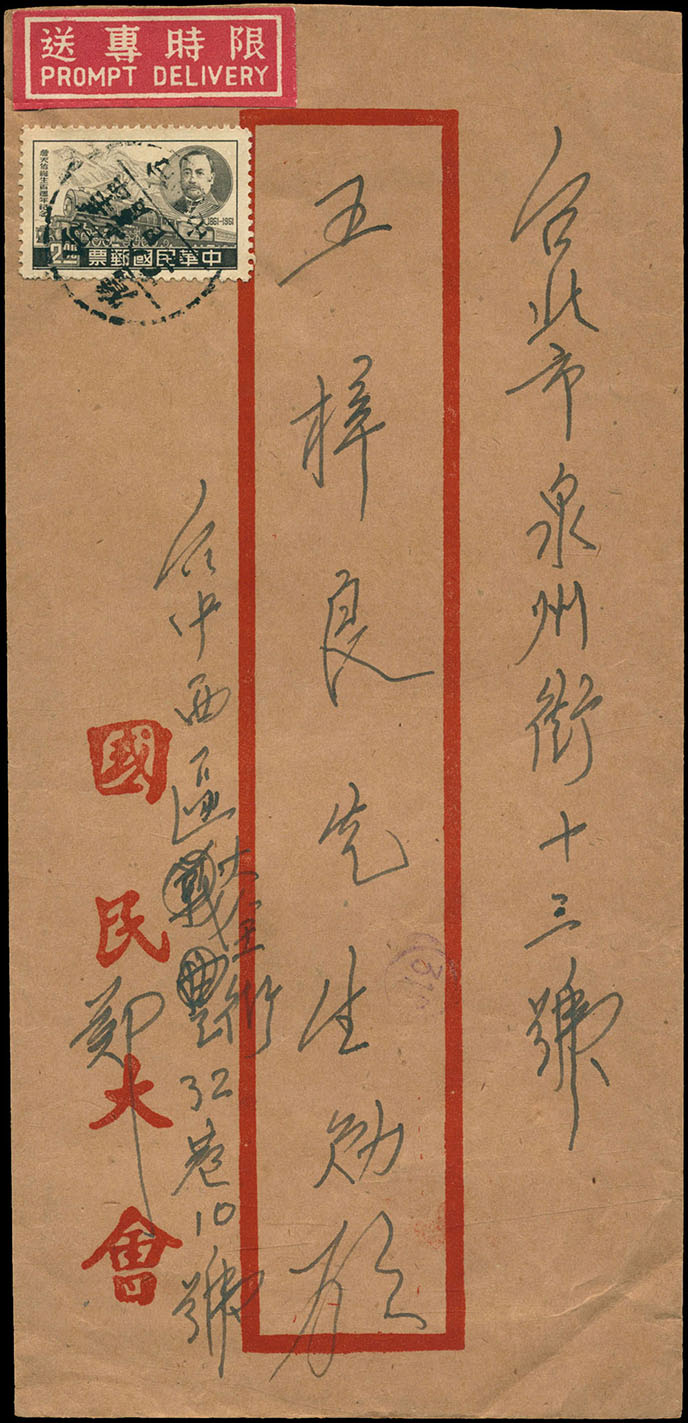 限時專送
PROMPT DELIVERY
詹天佑誕生百週年紀念
1861-1961
2.00
中華民國郵票
台北市泉州街十三號
王梓良先生勛啟
台中西區大全街32巷10號
國民大會
鄭